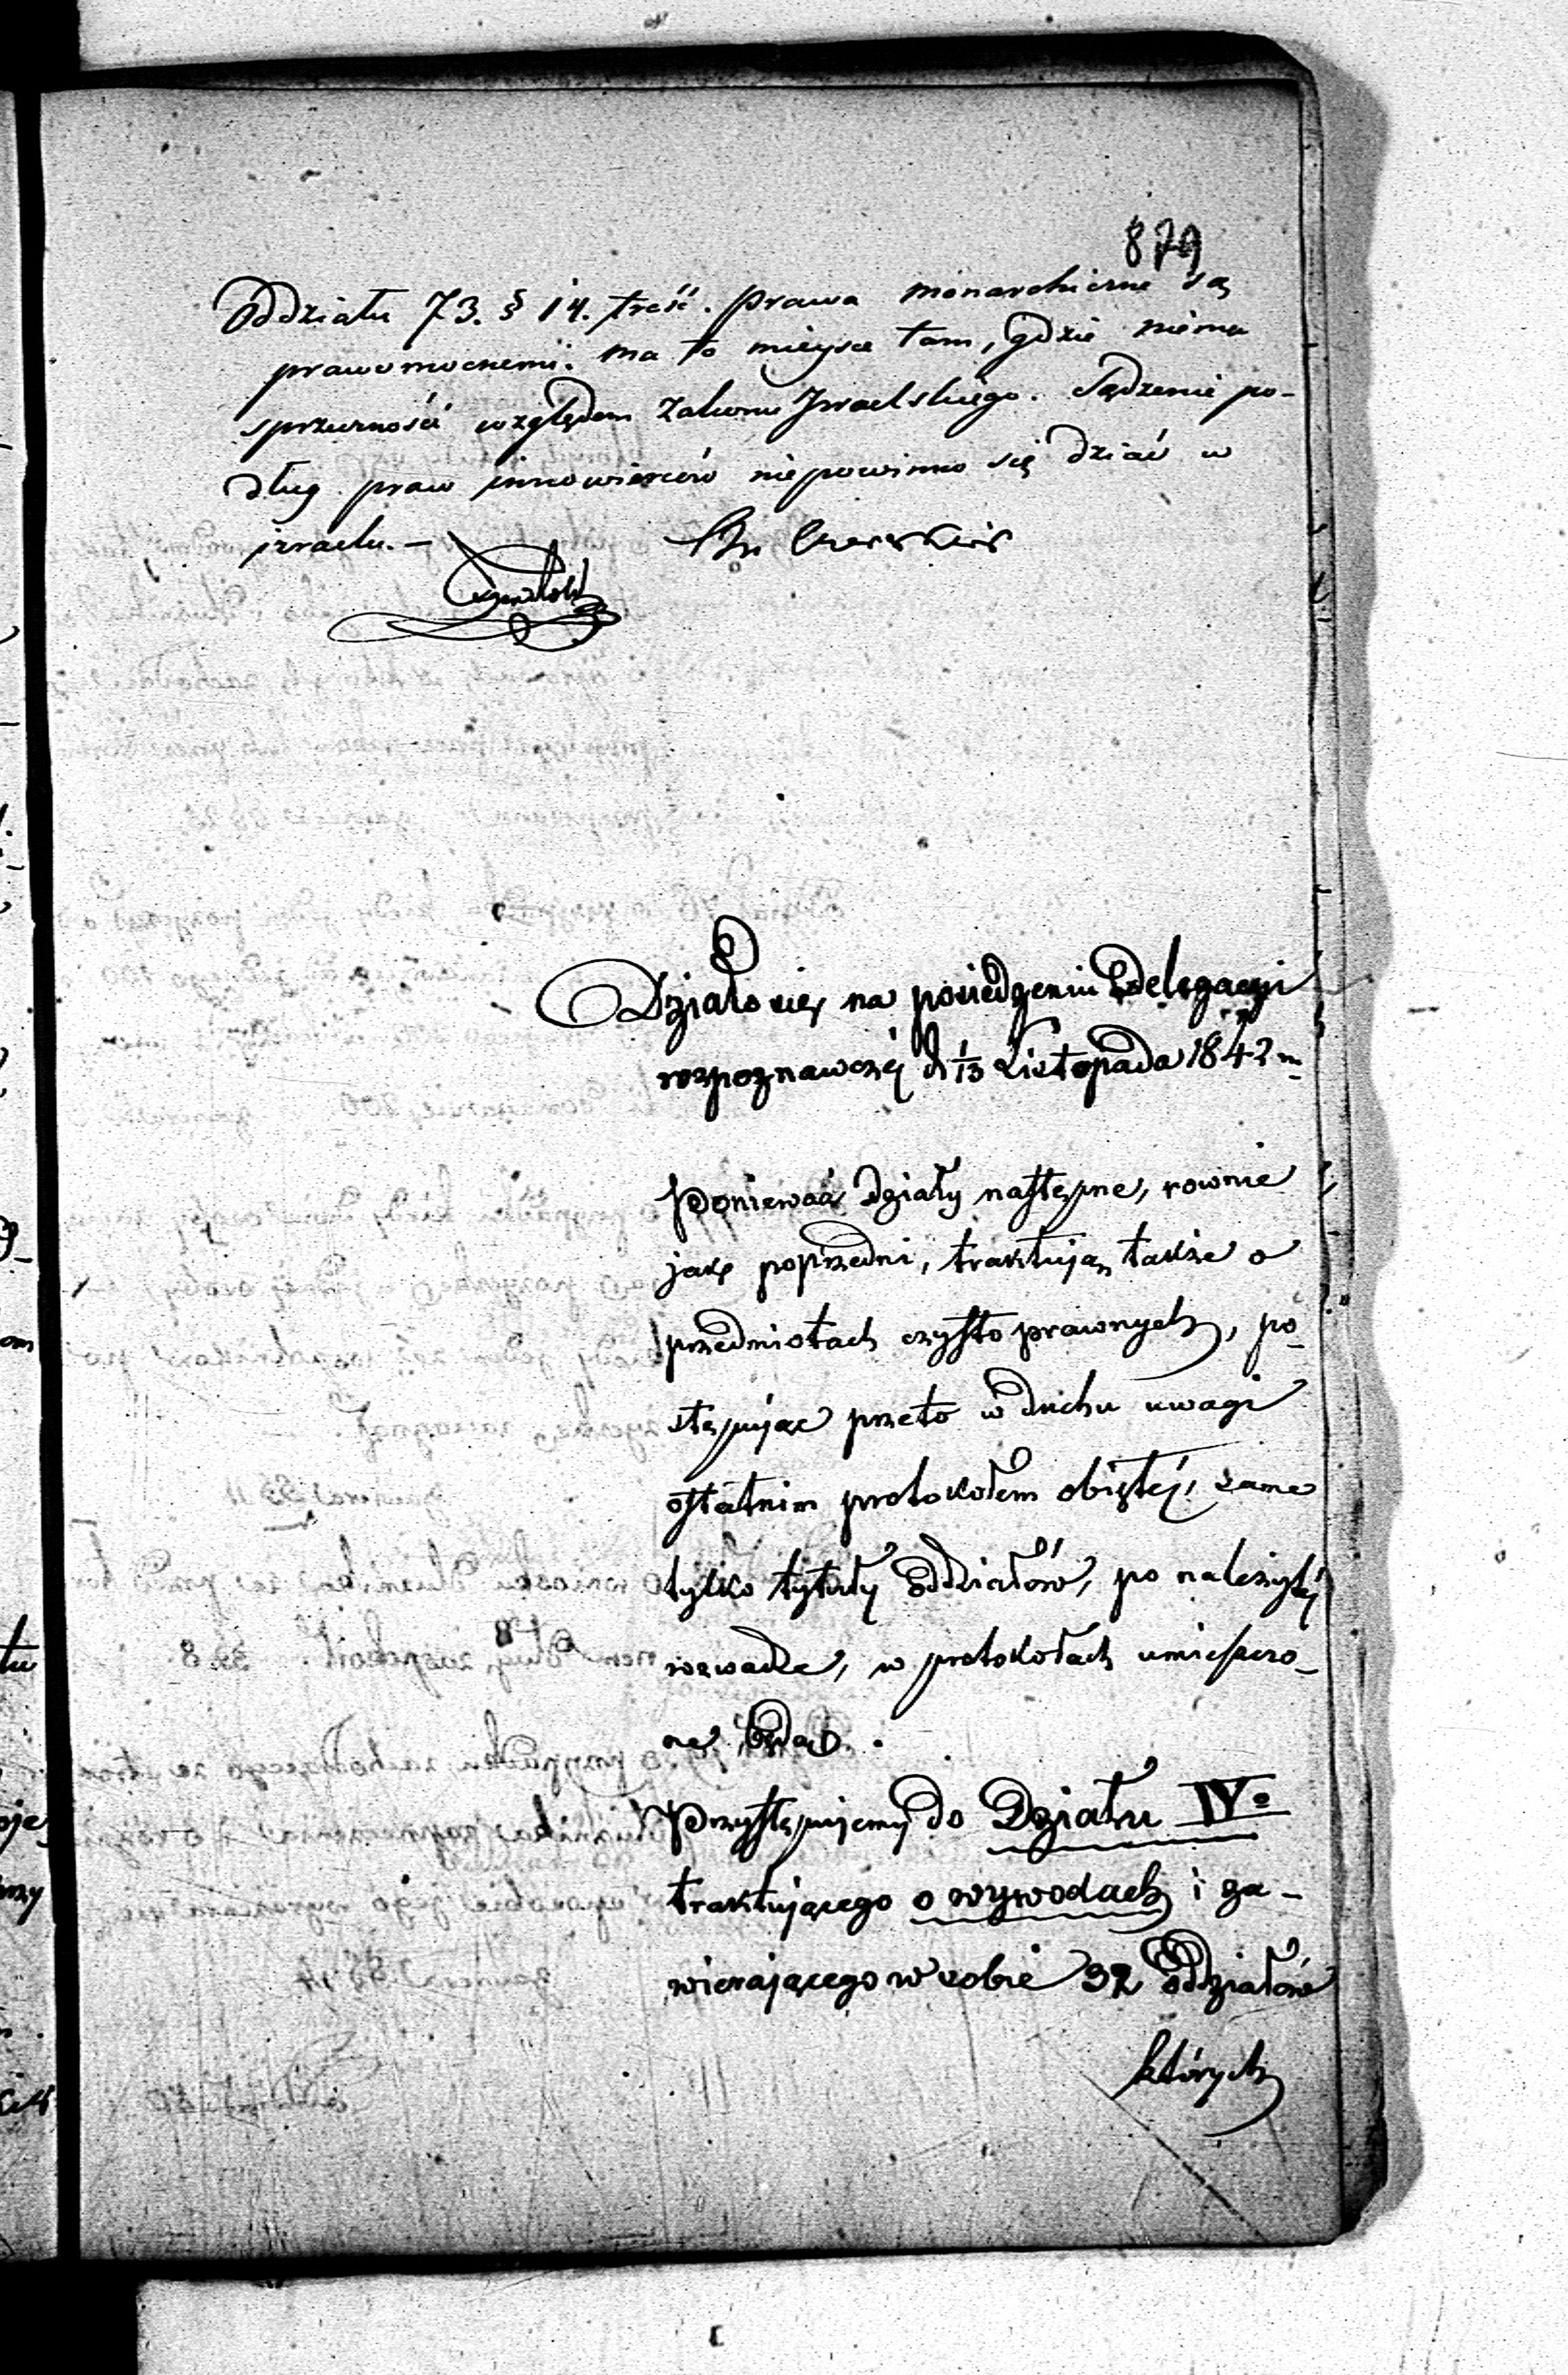 879
Oddziału 73. § 14. treść. prawa monarchiczne są
prawomocnemi. ma to mieysce tam, gdzie niema
sprzeczności względem Zakonu Izraelskiego. Sądzenie po-
dług praw innowierców niepowinno się dziać w
izraelu. —
Działo się na posiedzeniu Delegacyi
rozpoznawczéj d 1/13 Listopada 1842 r.
Ponieważ działy następne, rownie
jak poprzedni, traktują także o
przedmiotach czysto prawnych, po-
stępując przeto w duchu uwagi
ostatnim protokołem objętéj, same
tylko tytuły Oddziałów, po należytéj
rozwadze, w protokołach umieszczo-
ne będą.
Przystępujemy do Działu IVo
traktującego o wywodach i za-
wierającego w sobie 32 Oddziałów
których